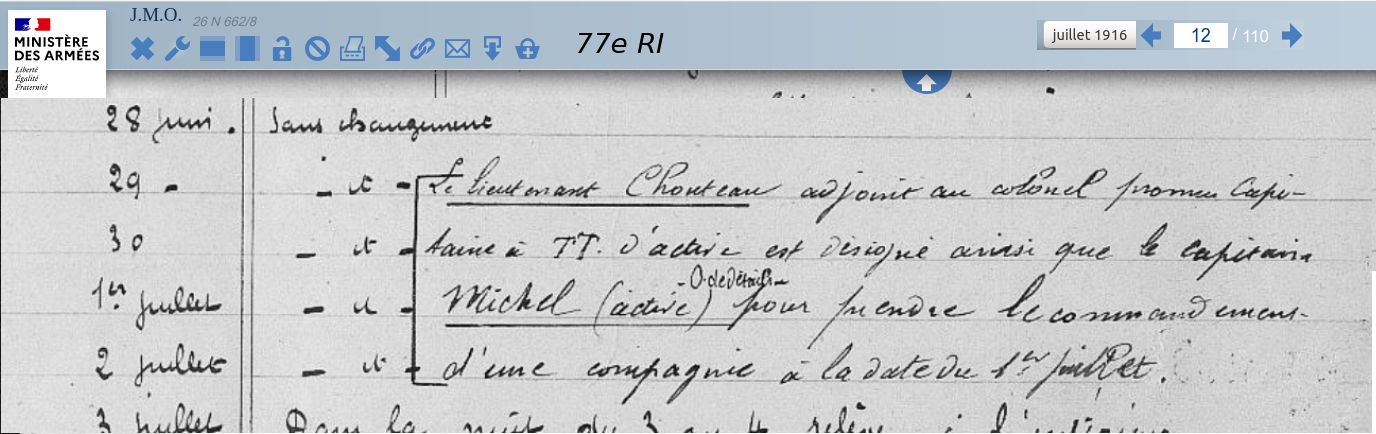 J.M.O. 26 N 662/8
77e RI
juillet 1916
12 / 110
MINISTÈRE
DES ARMÉES
Liberté
Égalité
Fraternité
28 juin. Sans changement
29 - - it - Le lieutenant Chouteau adjoint au colonel promu Capi-
30 - it - taine à TT. d'active est désigné ainsi que le capitaine
- O. de Détails -
1er juillet - it - Michel (active) pour prendre le commandement
2 juillet - it - d'une compagnie à la date du 1er juillet.
3 juillet Dans la nuit du 3 au 4 relève à l'intérieur